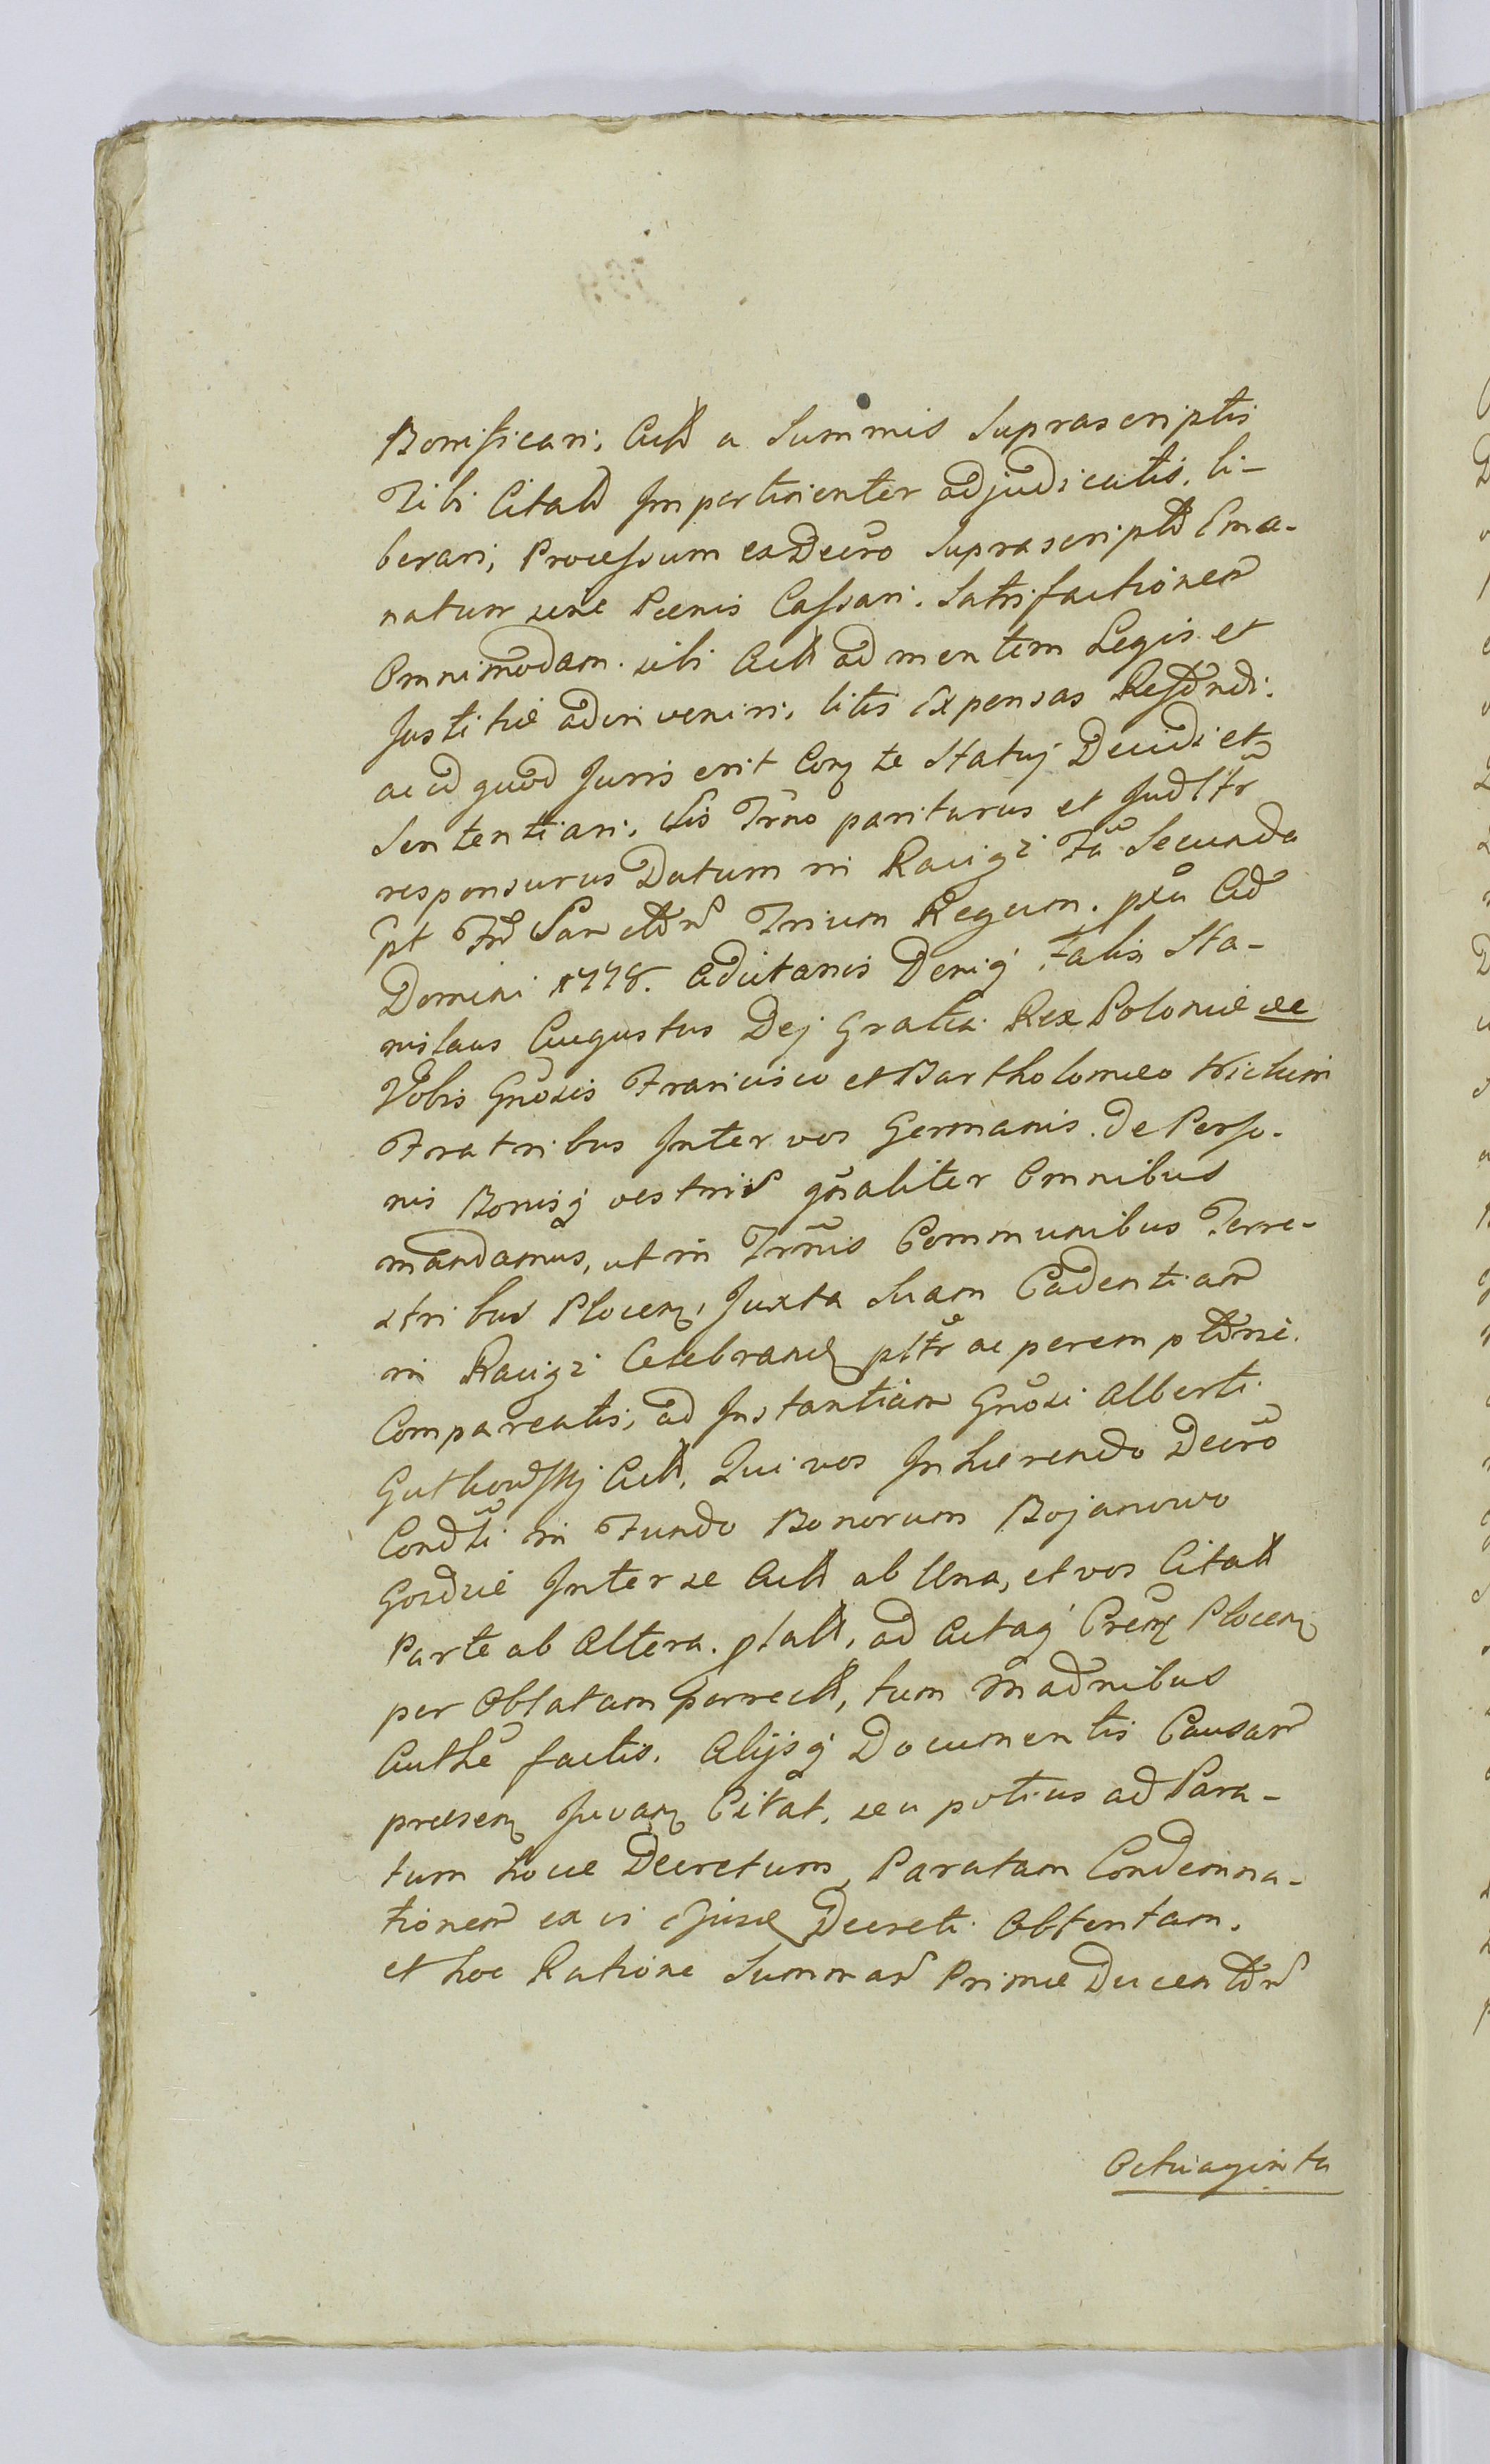 Bonificari, Actt̃ a Summis Suprascriptis
Tibi Citatt̃ Impertinenter adjudicatis, li-
berari, Processum ex Decr̃o Suprascriptt̃ Ema-
natum sine Poenis Cassari. Satisfactionem
Omnimodam sibi Actt̃ ad mentem Legis et
Justitiæ adinveniri, litis Expensas
ac id quod Juris erit Cor̃ se Statuj Decidi et
Sententiari. Sis Tr̃no pariturus et Judltr̃
responsurus Datum in Raciąż Fr̃a Secunda
pt Fr̃ Sanctt̃r̃ Trium Regum. px̃a Ad̃
Domini 1778. Adcitaonis Deniq̃ talis Sta-
nislaus Augustus Dej Gratia Rex Poloniæ &c
Vobis Gñosis Francisco et Bartholomeo
Fratribus Inter vos Germanis. de Perso-
nis Bonisq̃ vestris gñaliter Omnibus
mandamus, ut in Trñis Communibus Terre-
stribus Plocen̄, Juxta Suam Cadentiam
in Raciąż Celebrand̄ pltr̃ ac peremptt̃rie
Compareatis, ad Instantiam Gñosi Alberti
Gutkowskj Actt̃, Qui vos Inhærendo Decr̃o
Cond̃ti in Fundo Bonorum Bojanowo
Inter se Actt̃ ab Una, et vos Citatt̃
Parte ab Altera. ad Actaq̃ Plocen̄
per Oblatam porrectt̃, tum
Authẽ factis. Alijsq̃ Documentis Causam
præsen̄ Juvan̄ Citat, seu potius ad Para-
tum hocce Decretum, Paratam Condemna-
tionem ex vi ejusd̄ Decreti Obtentam.
et hoc Ratione Summar̃ Primæ Ducentt̃r̃
Octuaginta